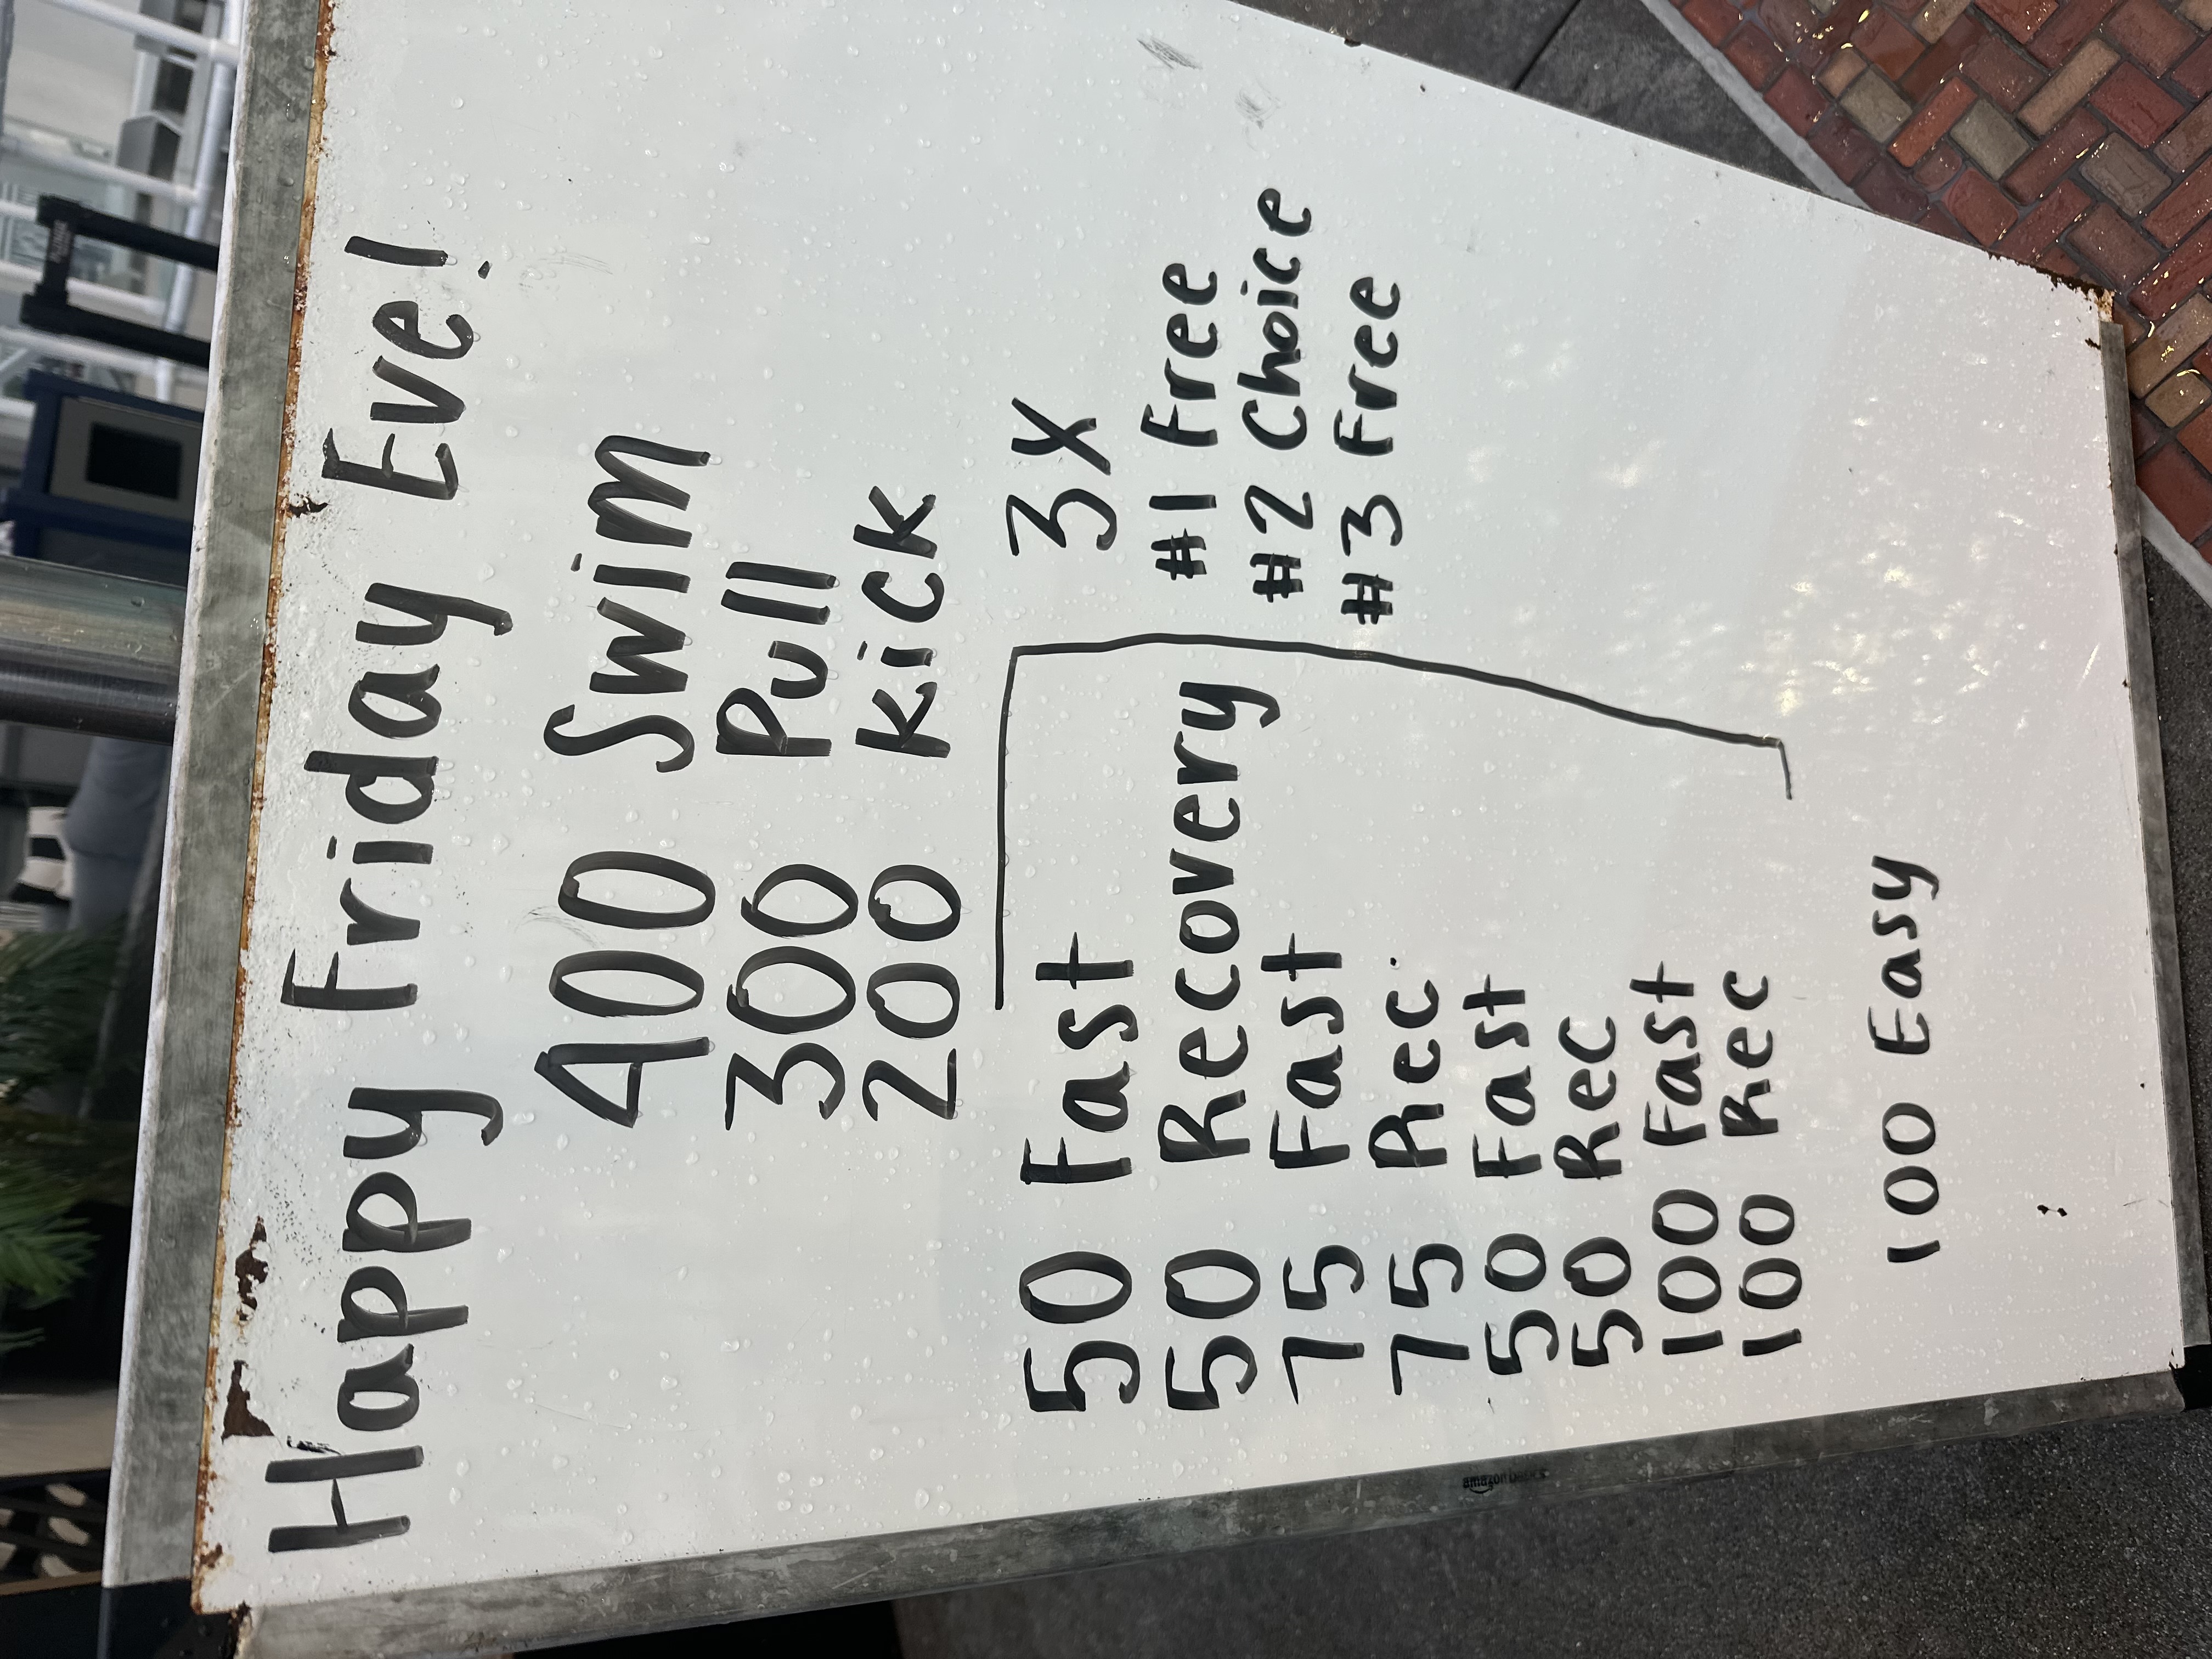 Happy Friday Eve!
400 Swim
300 Pull
200 Kick
3X
50 Fast
#1 Free
50 Recovery
#2 Choice
75 Fast
#3 Free
75 Rec.
50 Fast
50 Rec
100 Fast
100 Rec
100 Easy
amazonbasics